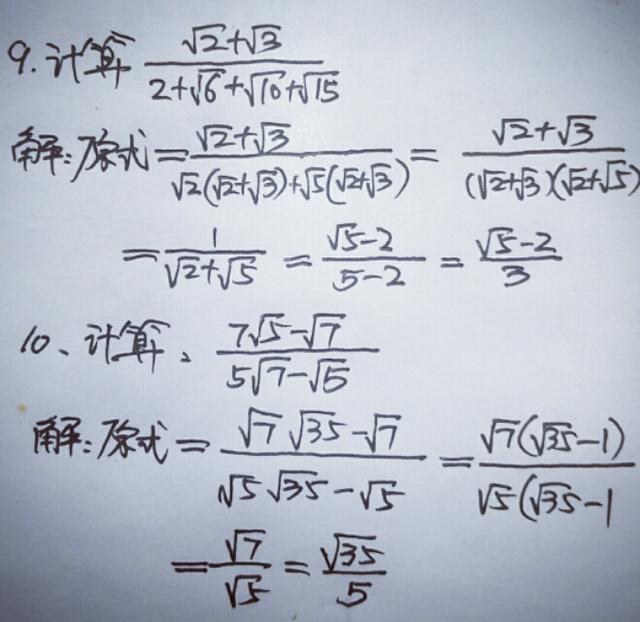 9. 计算 (√2+√3)/(2+√6+√10+√15)
解:原式=(√2+√3)/(√2(√2+√3)+√5(√2+√3))=(√2+√3)/((√2+√3)(√2+√5)
=1/(√2+√5)=(√5-2)/(5-2)=(√5-2)/3
10、计算、(7√5-√7)/(5√7-√5)
解:原式=(√7√35-√7)/(√5√35-√5)=√7(√35-1)/√5(√35-1
=√7/√5=√35/5